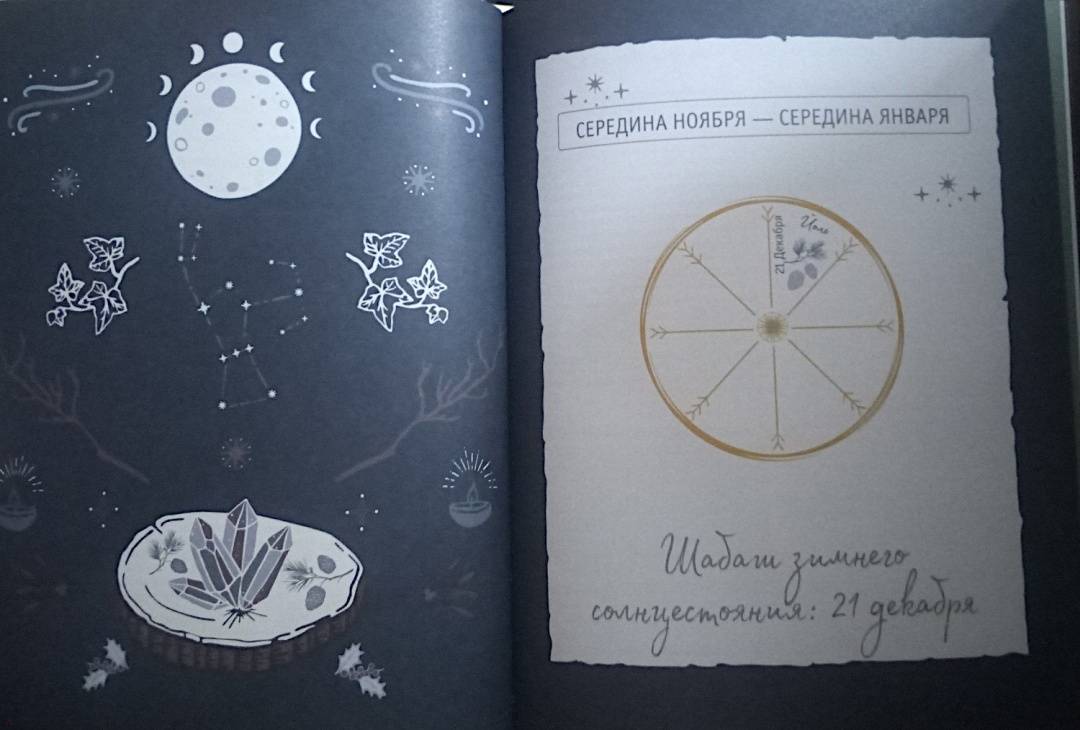 СЕРЕДИНА НОЯБРЯ — СЕРЕДИНА ЯНВАРЯ
21 Декабря
Йоль
Шабаш зимнего
солнцестояния: 21 декабря